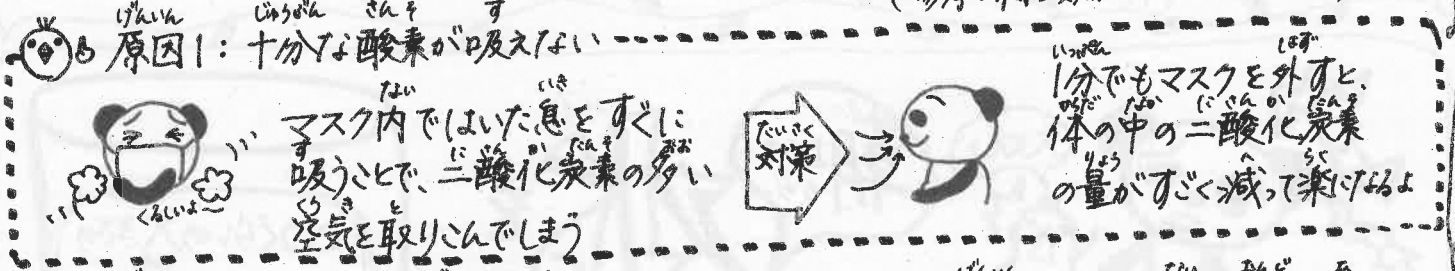 原因1：十分な酸素が吸えない
マスク内ではいた息をすぐに
吸うことで、二酸化炭素の多い
空気を取りこんでしまう
くるしいよ〜
対策
1分でもマスクを外すと、
体の中の二酸化炭素
の量がすごく減って楽になるよ